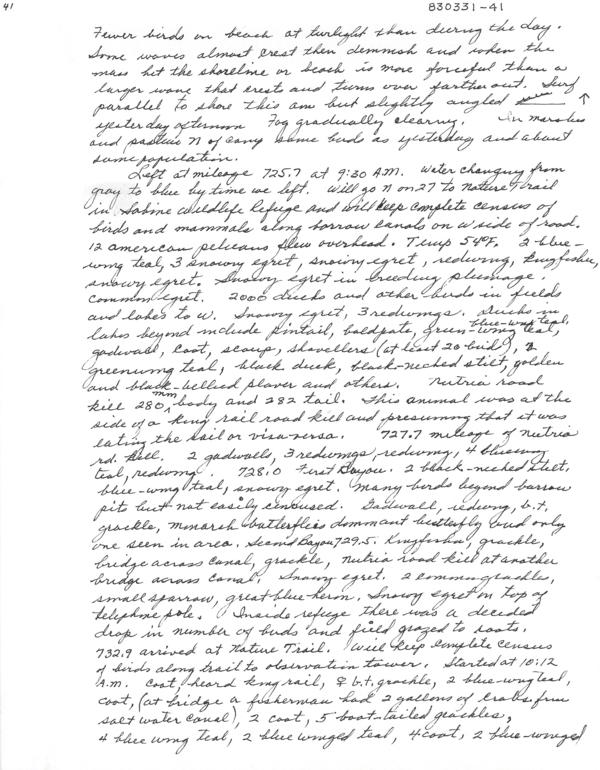 41
830331-41
Fewer birds on beach at twilight than during the day.
Some waves almost crest then diminish and when the
mass hit the shoreline or beach is more forceful than a
larger wave that crests and turns over farther out. Surf
parallel to shore this am but slightly angled
yesterday afternoon Fog gradually clearing. In marshes
and pasture N of camp same birds as yesterday and about
same population.
Left at mileage 725.7 at 9:30 A.M. Water changing from
gray to blue by time we left. Will go N on 27 to Nature Trail
in Sabine Wildlife Refuge and will keep complete census of
birds and mammals along borrow canals on W side of road.
12 american pelicans flew overhead. Temp 54°F. 2 blue-
wing teal, 3 snowy egret, snowy egret, redwing, kingfisher,
snowy egret. Snowy egret in breeding plumage.
common egret. 2000 ducks and other birds in fields
and lakes to W. Snowy egret, 3 redwings. Ducks in
lakes beyond include pintail, baldpate, green-wing teal, blue-wing teal,
gadwall, coot, scaup, shovellers (at least 20 birds), 2
greenwing teal, black duck, black-necked stilt, golden
and black-bellied plover and others. Nutria road
kill 280 mm body and 282 tail. This animal was at the
side of a king rail road kill and presuming that it was
eating the rail or visa-versa. 727.7 mileage of nutria
rd. kill. 2 gadwalls, 3 redwings, redwing, 4 bluewing
teal, redwing. 728.0 First Bayou. 2 black-necked stilt,
blue-wing teal, snowy egret. Many birds beyond barrow
pits but not easily censused. Gadwall, redwing, b.t.
grackle, monarch butterflies dominant butterfly bud only
one seen in area. Second Bayou 729.5. Kingfisher, grackle,
bridge across canal, grackle, nutria road kill at another
bridge across canal. Snowy egret. 2 common grackles,
small sparrow, great blue heron. Snowy egret on top of
telephone pole. Inside refuge there was a decided
drop in number of birds and field grazed to roots.
732.9 arrived at Nature Trail. Will keep complete census
of birds along trail to observation tower. Started at 10:12
A.M. Coot, heard king rail, ♀ b.t. grackle, 2 blue-wing teal,
coot, (at bridge a fisherman had 2 gallons of crabs from
salt water canal), 2 coot, 5 boat-tailed grackles,
4 blue wing teal, 2 blue winged teal, 4 coot, 2 blue-winged